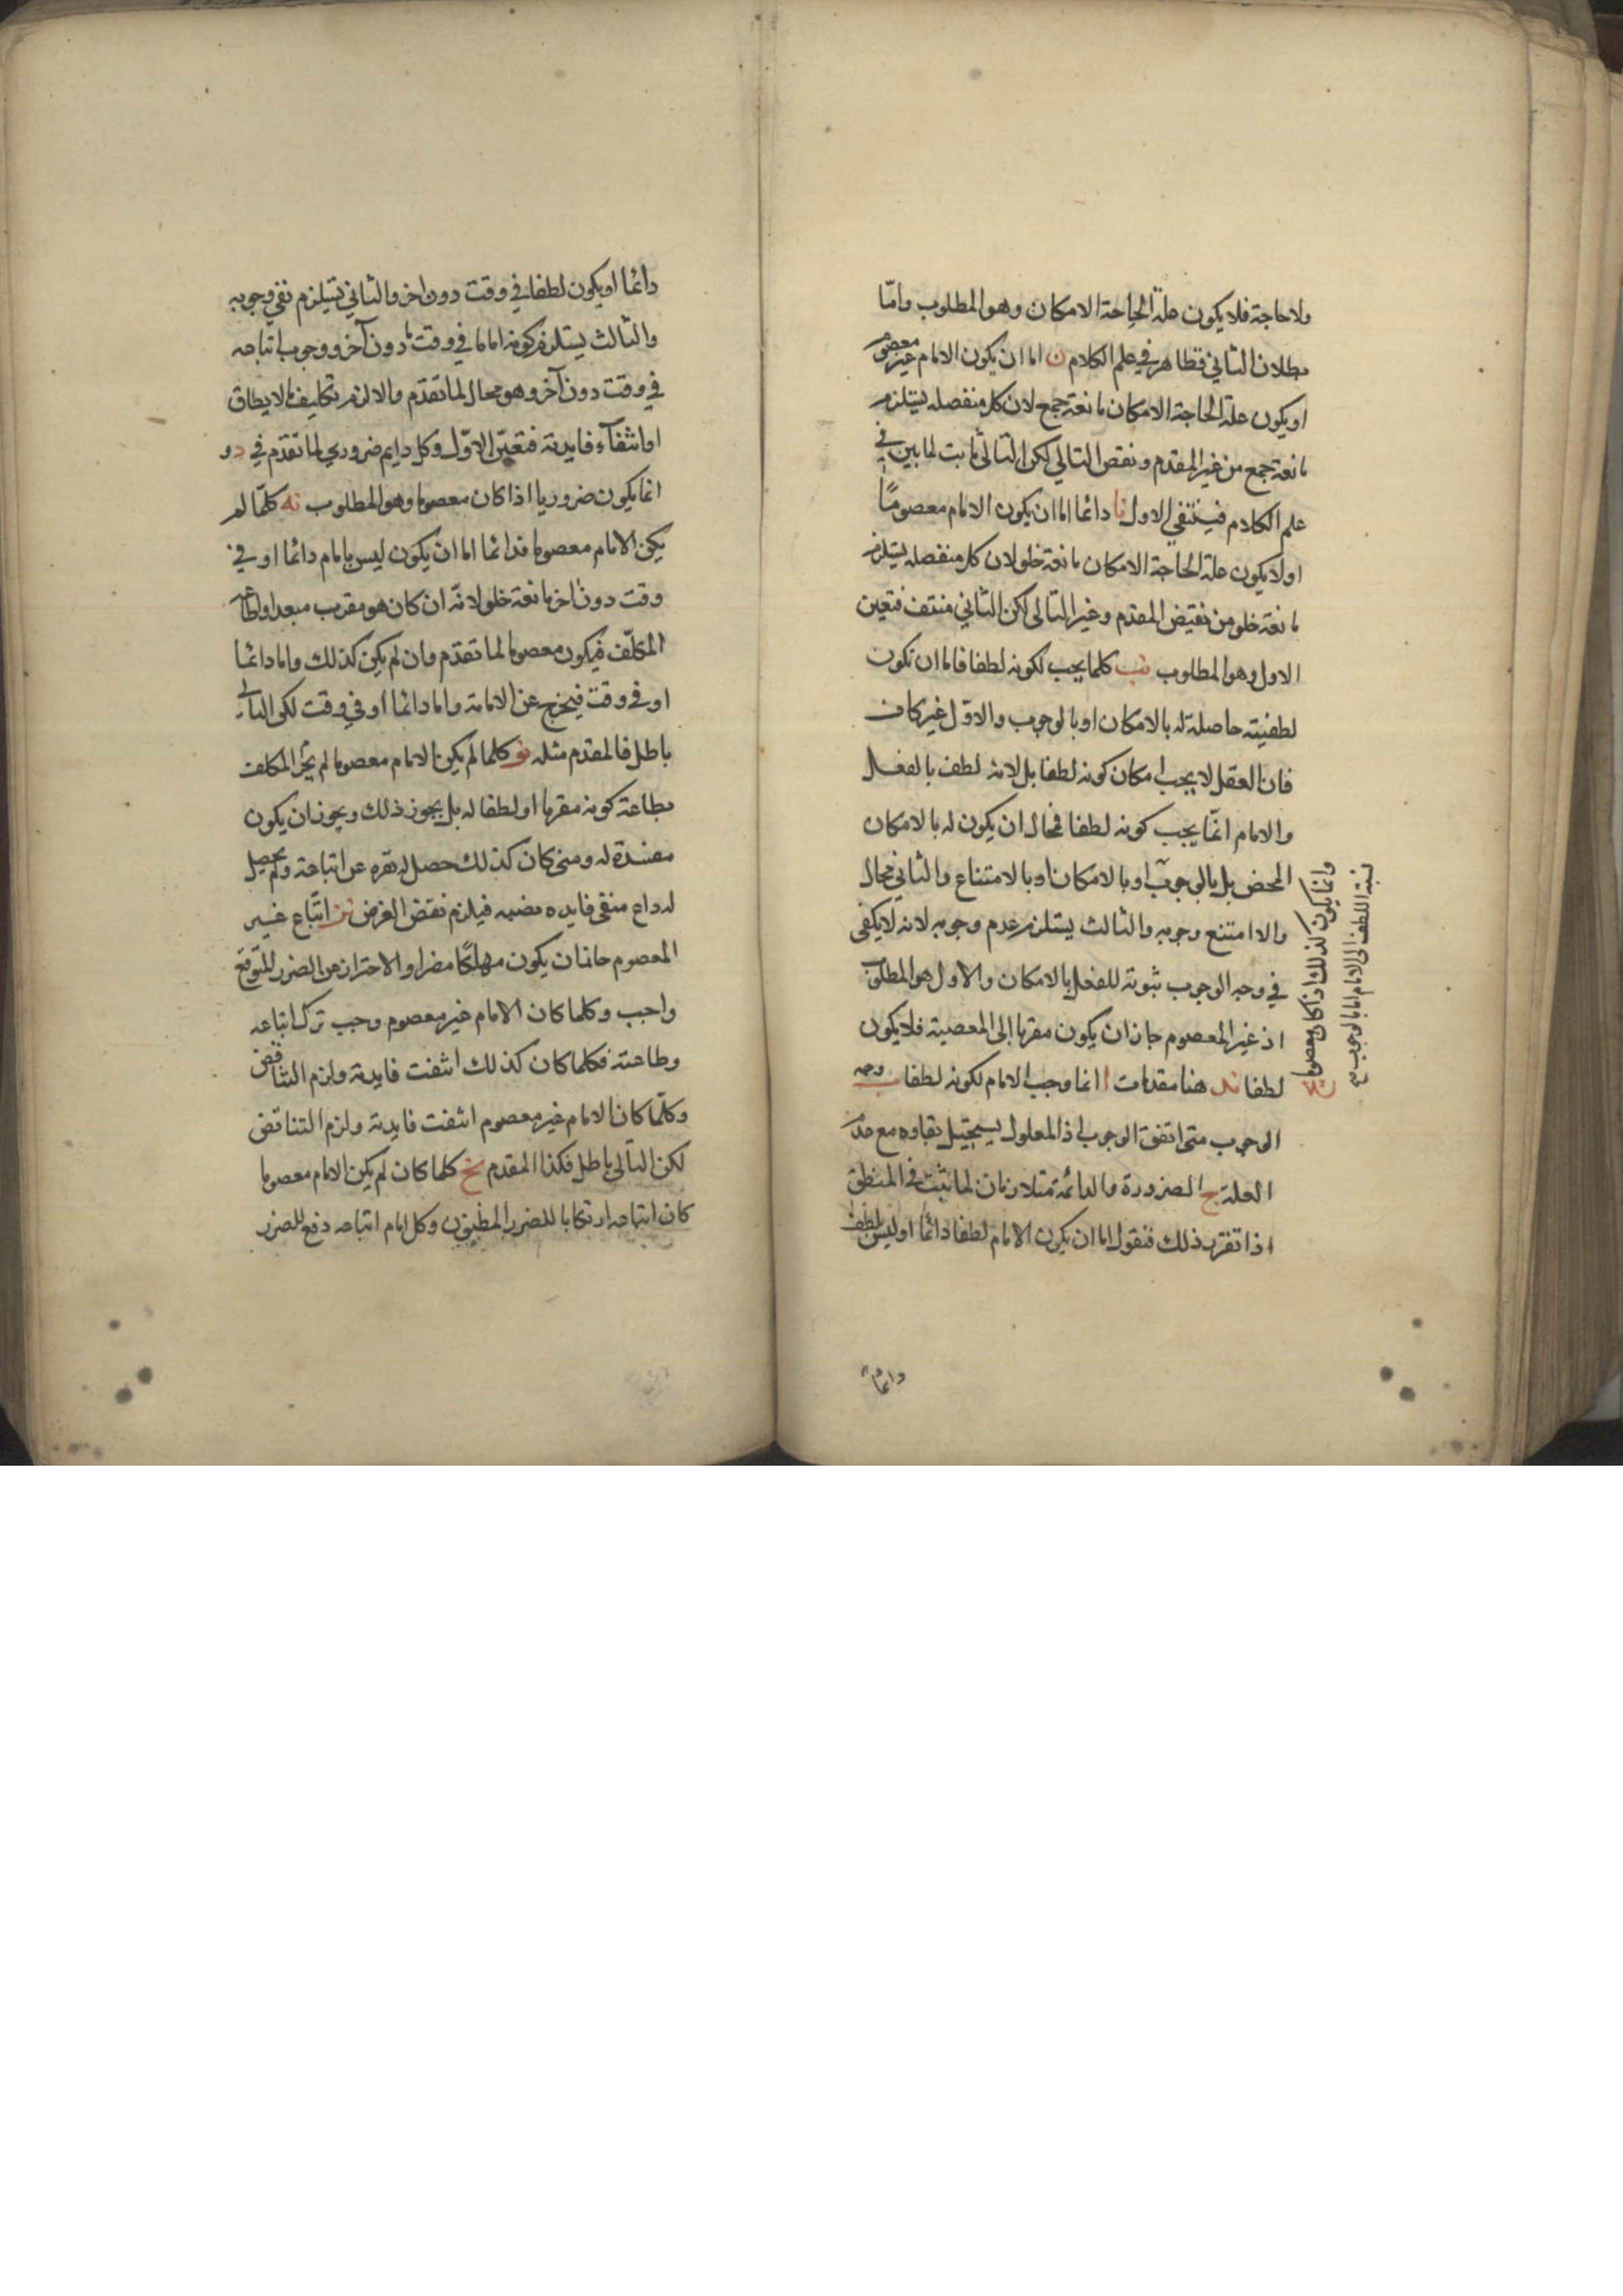 ولا حاجة فلا يكون علة الحاجة الامكان وهو المطلوب وامّا
بطلان الثاني فظاهر في علم الكلام ن اما ان يكون الامام غير معصوم
او يكون علة الحاجة الامكان مانعة جمع لان كل منفصله يستلزم
مانعة جمع من غير المقدم ونقض التالي لكن التالى ثابت لما بين في
علم الكلام فينتفي الاول نا دائما اما ان يكون الامام معصومًا
او لا يكون علة الحاجة الامكان مانعة خلو لان كل منفصله يستلزم
مانعة خلو من نقيض المقدم وغير التالى لكن الثاني منتف فتعين
الاول وهو المطلوب نب كلما يجب لكونه لطفا فاما ان تكون
لطفيته حاصلة له بالامكان او بالوجوب والاوّل غير كاف
فان العقل لا يجب امكان كونه لطفا بل لانه لطف بالفعل
والامام انّما يجب كونه لطفا فمحال ان يكون له بالامكان
المحض بل بالوجوب او بالامكان او بالامتناع والثاني محال
والا امتنع وجوبه والثالث يستلزم عدم وجوبه لانه لا يكفى
في وجه الوجوب ثبوته للفعل بالامكان والاول هو المطلوب
اذ غير المعصوم جاز ان يكون مقربا الى المعصية فلا يكون
لطفا ند هنا مقدمات ا انما وجب الامام لكونه لطفا ب وجه
الوجوب متى اتفق الوجوب اذ المعلول يستحيل بقاوه مع عدم
العلة ج الضرورة والدائمة متلازمان لما ثبت في المنطق
اذا تقرر ذلك فنقول اما ان يكون الامام لطفا دائما او ليس بلطف
وانما يكون كذلك اذا كان معصوما
نسبة اللطف الى الامام اما بالوجوب
دائما
دائما او يكون لطفا في وقت دون اخر والثاني يستلزم نفي وجوبه
والثالث يستلزم كونه اماما في وقت دون آخر ووجوب اتباعه
في وقت دون آخر وهو محال لما تقدم والا لزم تكليف ما لا يطاق
او انتفآء فايدته فتعيّن الاوّل وكل دايم ضروري لما تقدم في دو
انما يكون ضروريا اذا كان معصوما وهو المطلوب نه كلمّا لم
يكن الامام معصوما فدائما اما ان يكون ليس بامام دائما او في
وقت دون اخر مانعة خلو لانّه ان كان هو مقرب مبعد اوطاعه
المكلّف فيكون معصوما لما تقدم وان لم يكن كذلك واما دائما
او في وقت فيخرج عن الامامة واما دائما او في وقت لكن التالى
باطل فالمقدم مثله نو كلما لم يكن الامام معصوما لم يجز المكلف
بطاعة كونه مقربا او لطفا له بل يجوز ذلك ويجوز ان يكون
مفسدة له ومتى كان كذلك حصل له نفره عن اتباعه ولم يحصل
له داع فينتفى فايده نصبه فيلزم نقض الغرض نز اتّباع غير
المعصوم جاز ان يكون مهلكًا مضرا والاحتراز عن الضرر المتوقع
واجب وكلما كان الامام غير معصوم وجب ترك اتباعه
وطاعته فكلما كان كذلك انتفت فايدته ولزم التناقض
وكلّما كان الامام غير معصوم انتفت فايدته ولزم التناقض
لكن التالى باطل فكذا المقدم نح كلما كان لم يكن الامام معصوما
كان اتباعه ارتكابا للضرر المظنون وكل امام اتباعه دفع للضرر